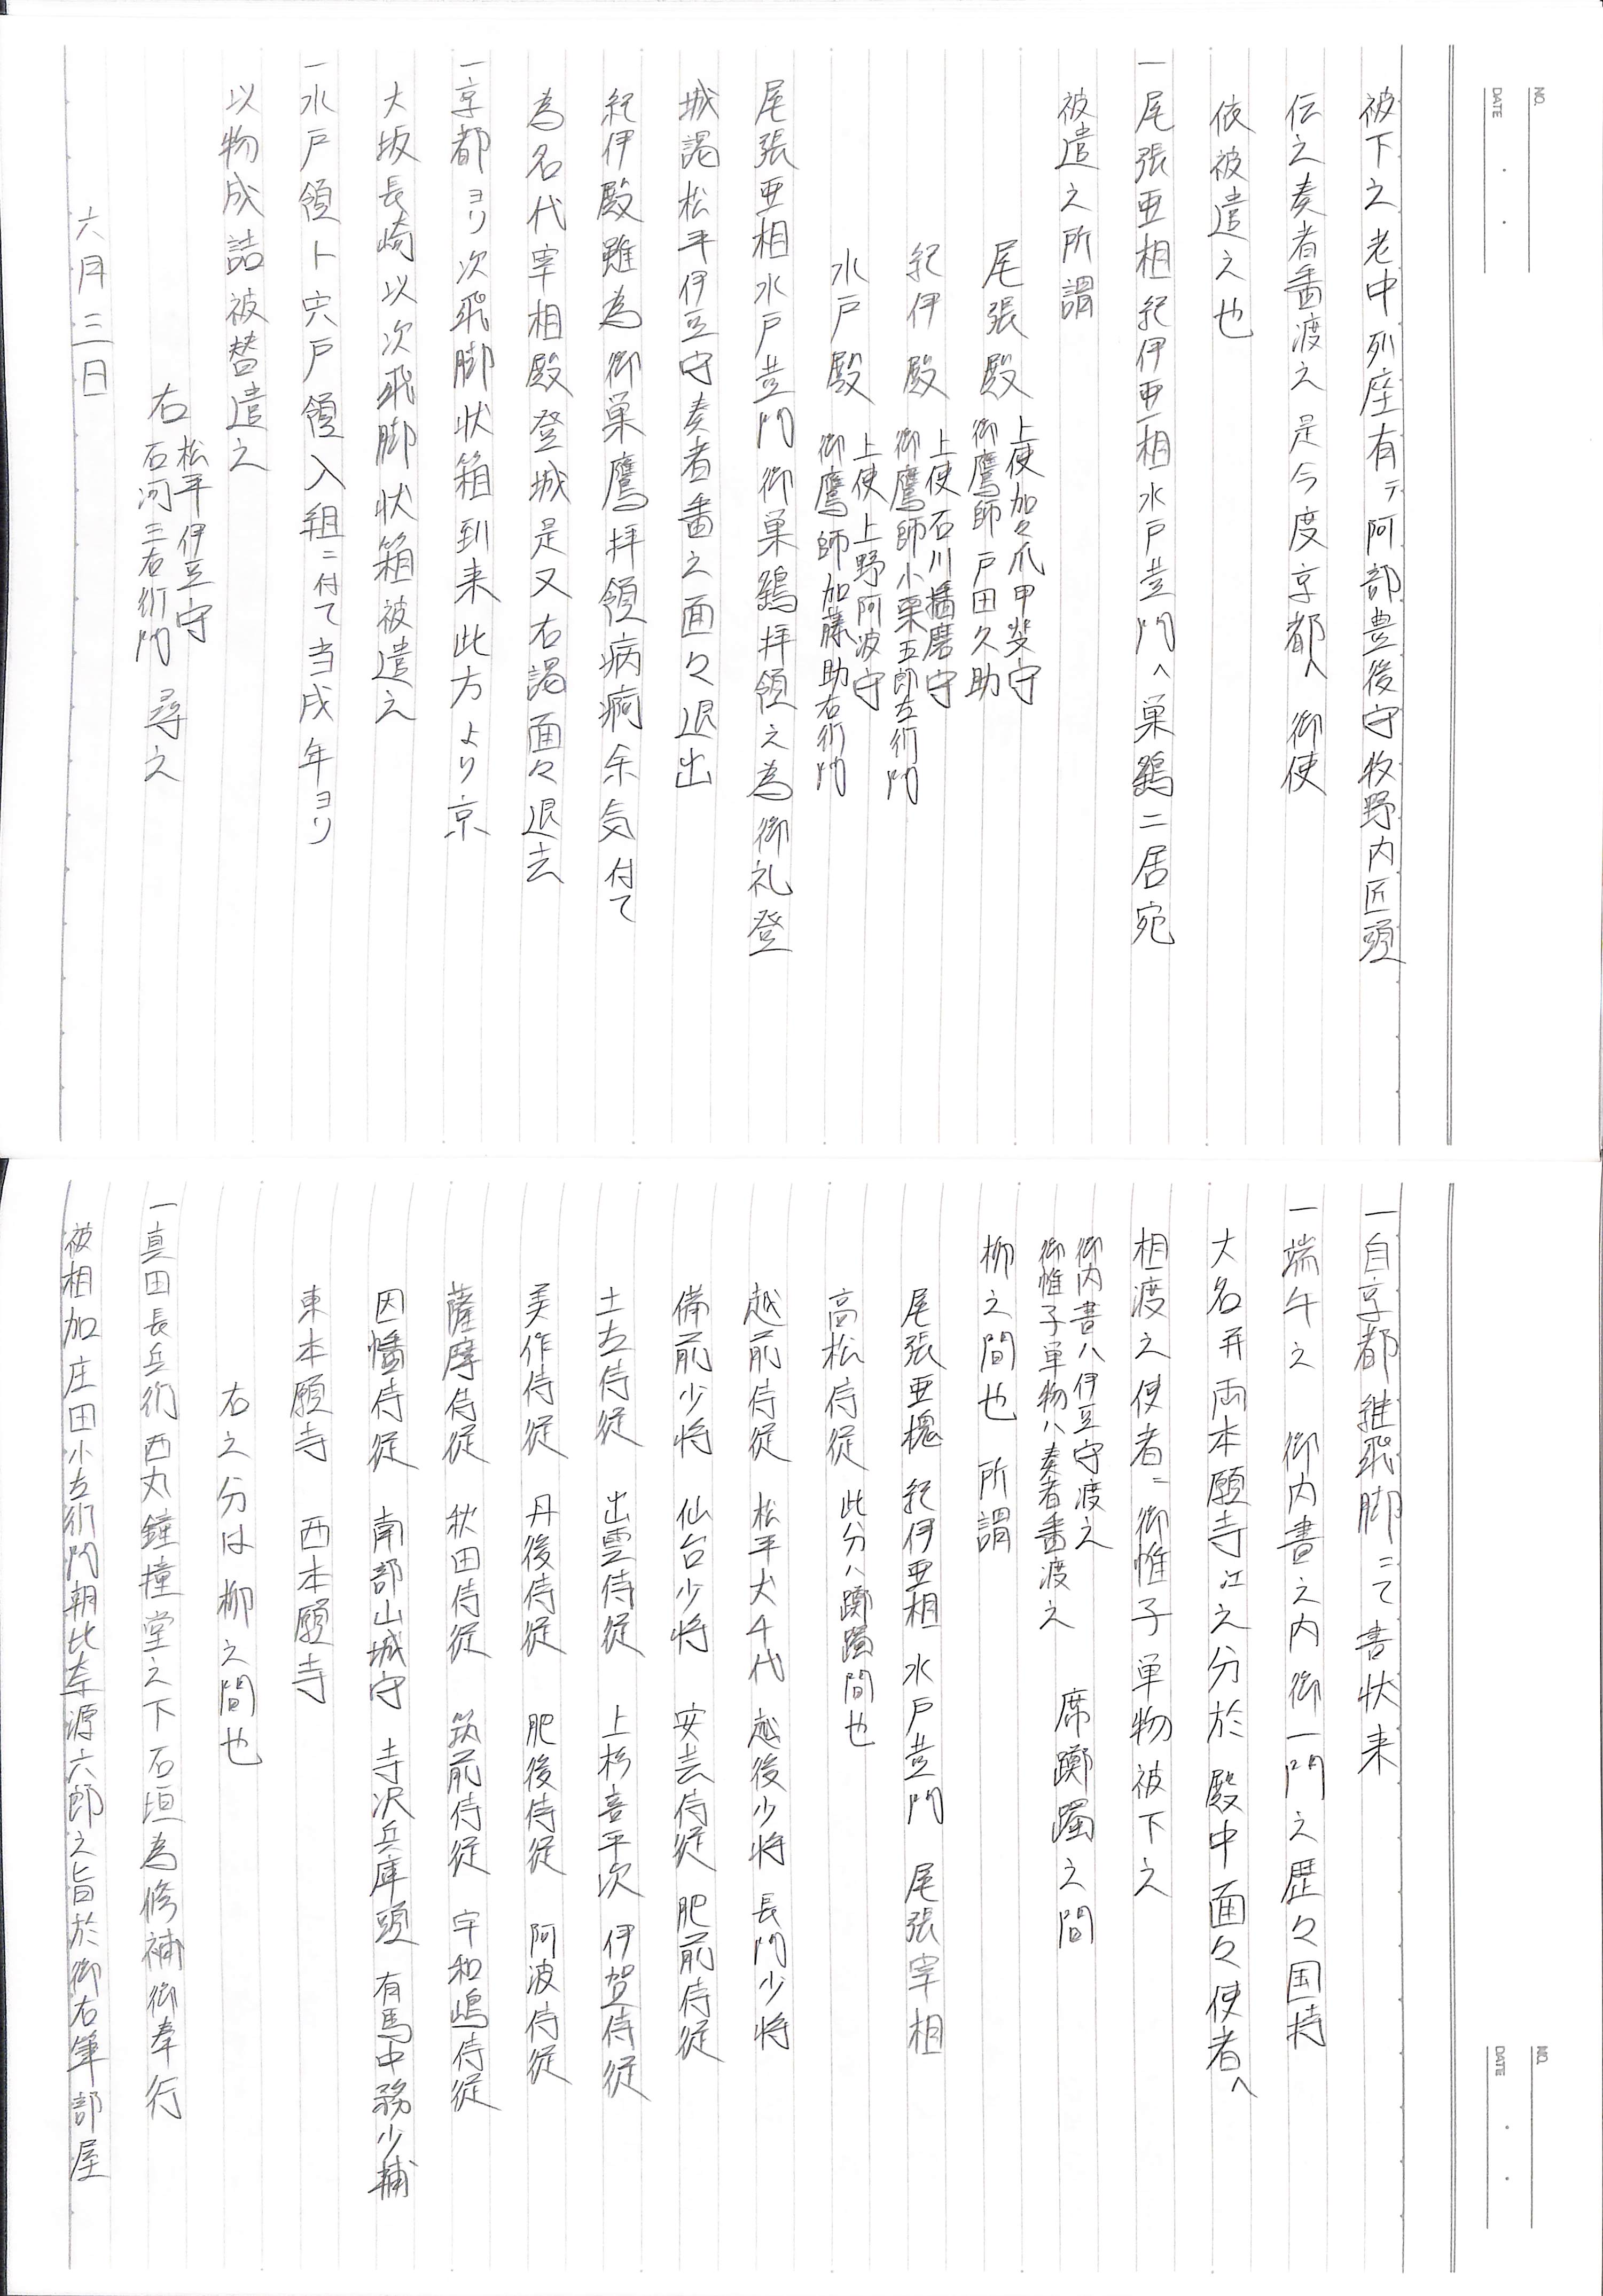 NO.
DATE
被下之老中列座有テ阿部豊後守牧野内匠頭
伝之奏者番渡之是今度京都へ御使
依被遣之也
一尾張亜相紀伊亜相水戸黄門へ巣鷂二居宛
被遣之所謂
尾張殿 上使加々爪甲斐守
御鷹師戸田久助
紀伊殿 上使石川播磨守
御鷹師小栗五郎左衛門
水戸殿 上使上野阿波守
御鷹師加藤助右衛門
尾張亜相水戸黄門御巣鷂拝領之為御礼登
城謁松平伊豆守奏者番之面々退出
紀伊殿雖為御巣鷹拝領病痾余気付て
為名代宰相殿登城是又右謁面々退去
一京都ヨリ次飛脚状箱到来此方より京
大坂長崎以次飛脚状箱被遣之
一水戸領ト宍戸領入組ニ付て当戌年ヨリ
以物成詰被替遣之
右 松平伊豆守
石河三右衛門 尋之
六月三日
NO.
DATE
一自京都継飛脚ニて書状来
一端午之 御内書之内御一門之歴々国持
大名并両本願寺江之分於殿中面々使者へ
相渡之使者ニ御帷子単物被下之
御内書ハ伊豆守渡之
御帷子単物ハ奏者番渡之 席躑躅之間
柳之間也 所謂
尾張亜槐 紀伊亜相 水戸黄門 尾張宰相
高松侍従 此分ハ躑躅間也
越前侍従 松平犬千代 越後少将 長門少将
備前少将 仙台少将 安芸侍従 肥前侍従
土左侍従 出雲侍従 上杉喜平次 伊賀侍従
美作侍従 丹後侍従 肥後侍従 阿波侍従
薩摩侍従 秋田侍従 筑前侍従 宇和嶋侍従
因幡侍従 南部山城守 寺沢兵庫頭 有馬中務少輔
東本願寺 西本願寺
右之分は柳之間也
一真田長兵衛西丸鐘撞堂之下石垣為修補御奉行
被相加庄田小左衛門朝比奈源六郎之旨於御右筆部屋